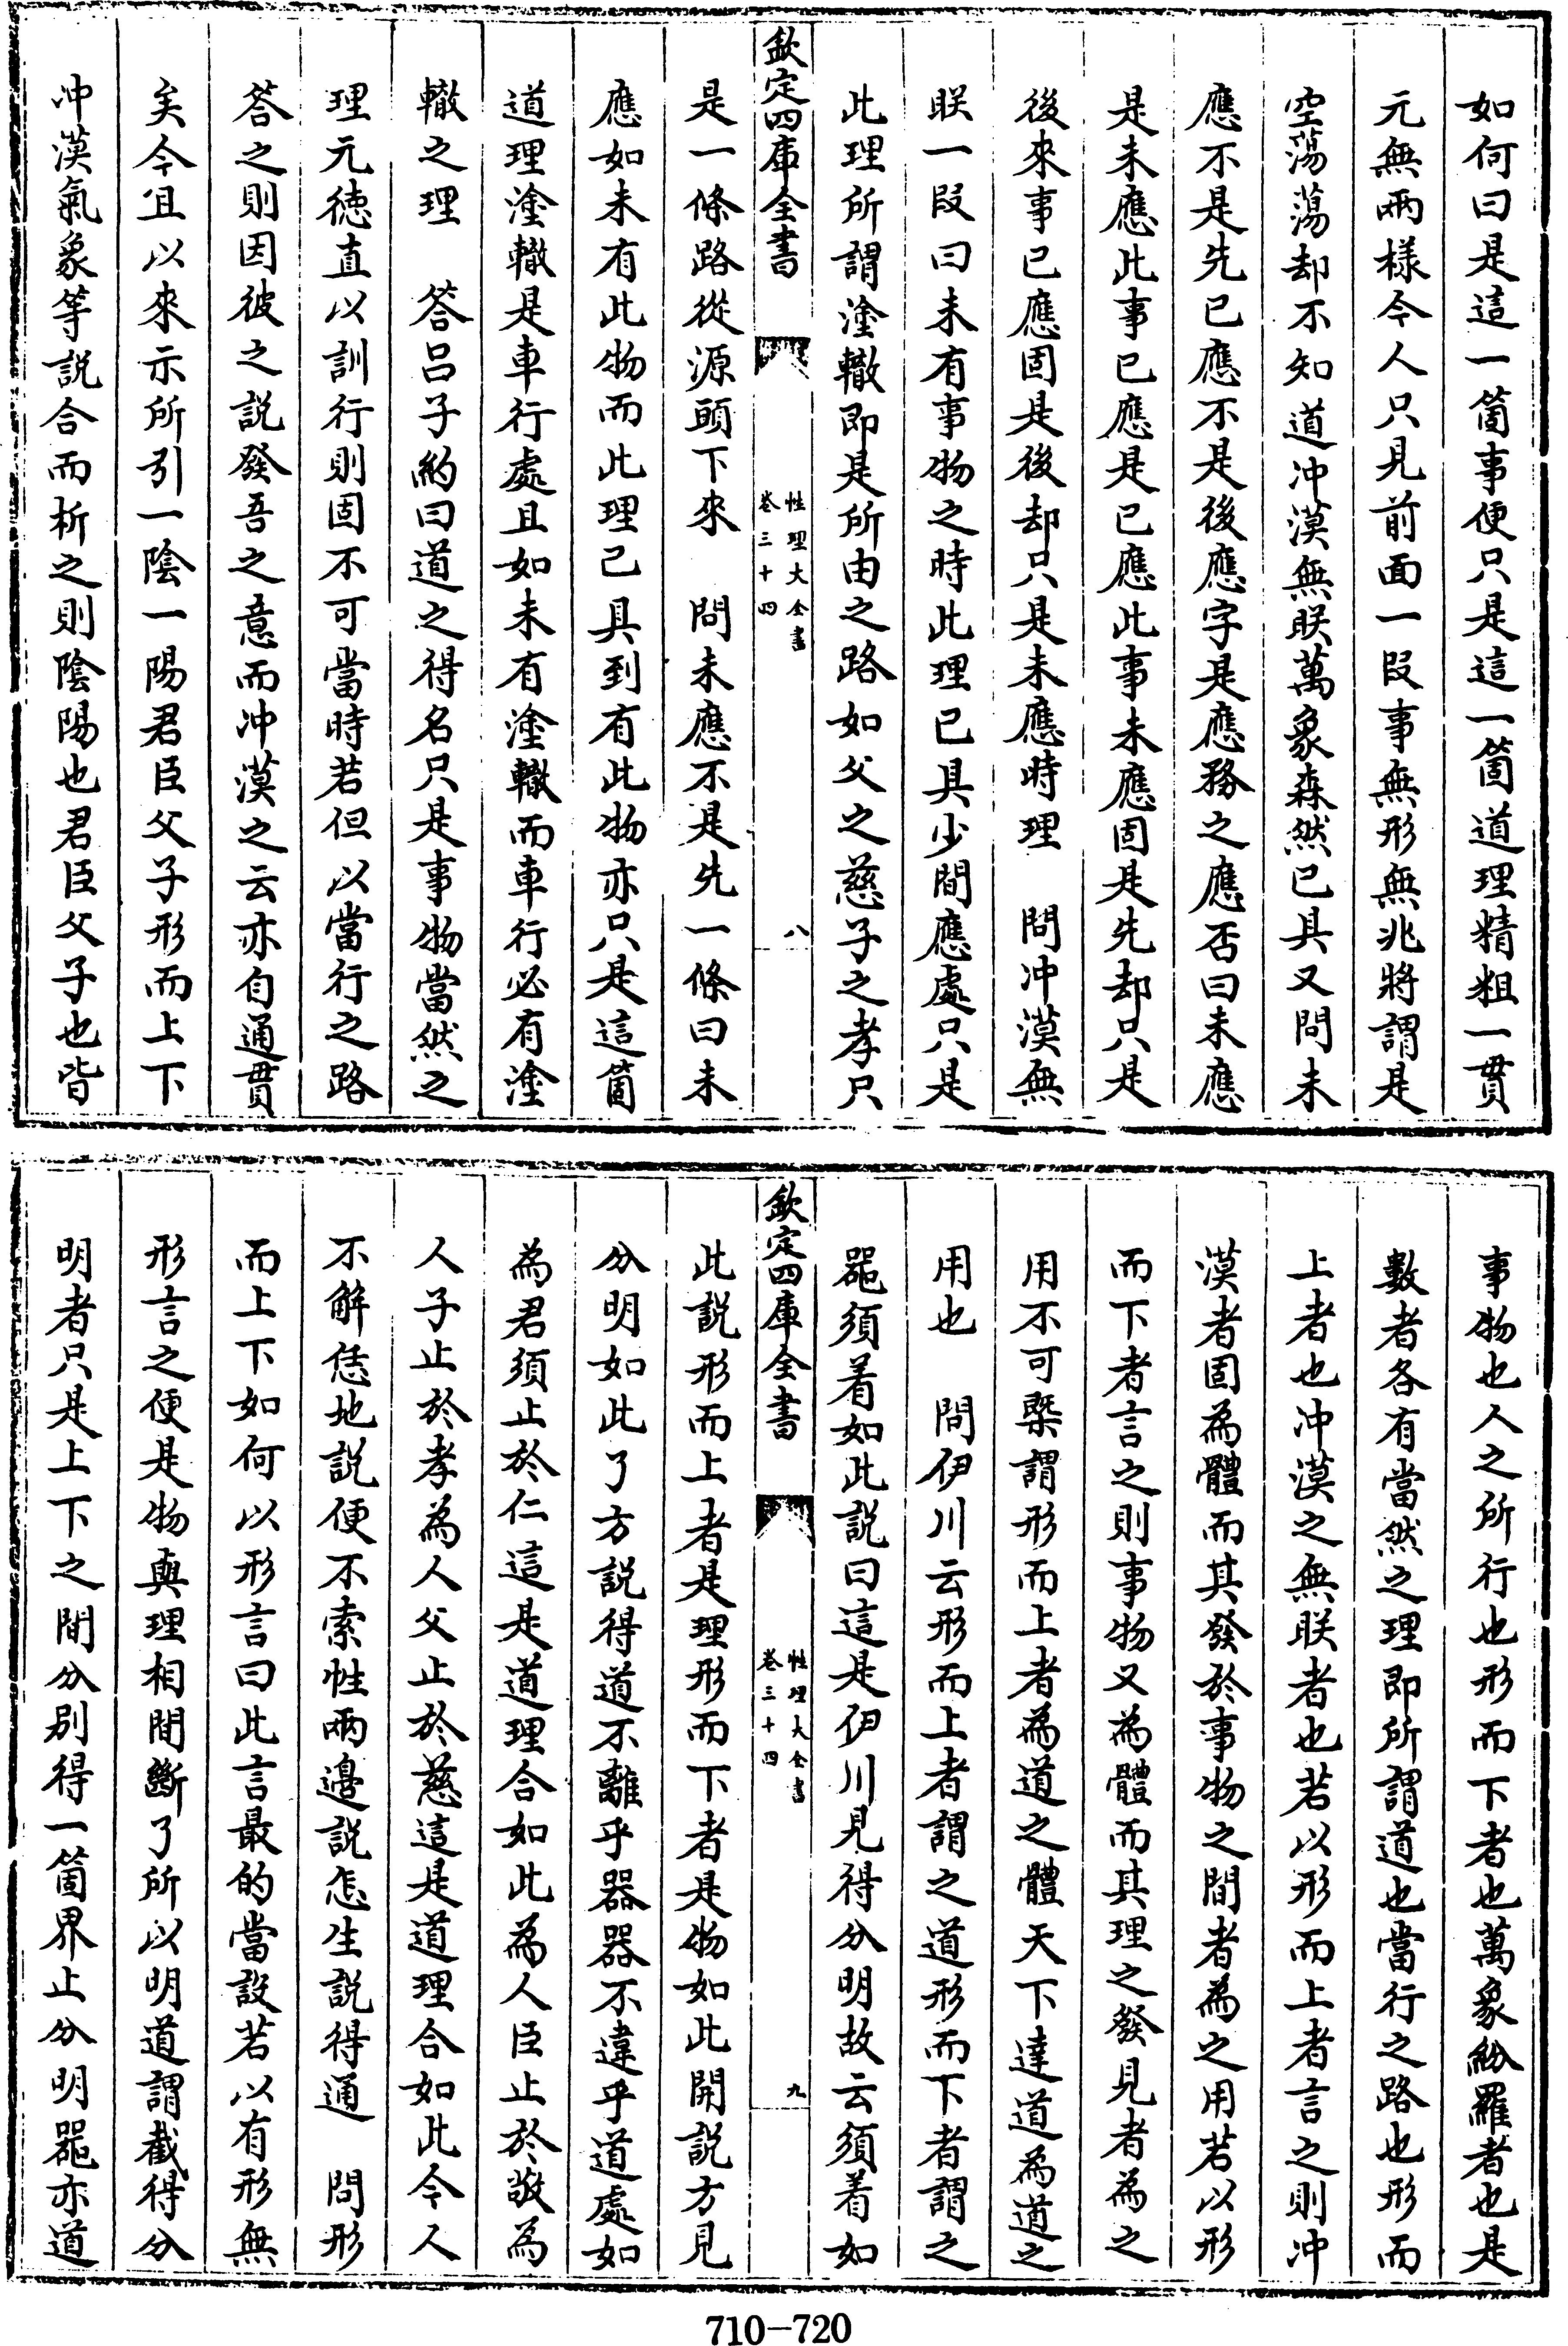 如何曰是這一箇事便只是這一箇道理精粗一貫
元無兩樣今人只見前面一段事無形無兆將謂是
空蕩蕩却不知道冲漠無朕萬象森然已具又問未
應不是先已應不是後應字是應務之應否曰未應
是未應此事已應是已應此事未應固是先却只是
後來事已應固是後却只是未應時理　問冲漠無
朕一段曰未有事物之時此理已具少間應處只是
此理所謂塗轍即是所由之路如父之慈子之孝只
欽定四庫全書
性理大全書
卷三十四
八
是一條路從源頭下來　問未應不是先一條曰未
應如未有此物而此理已具到有此物亦只是這箇
道理塗轍是車行處且如未有塗轍而車行必有塗
轍之理　答呂子約曰道之得名只是事物當然之
理元德直以訓行則固不可當時若但以當行之路
答之則因彼之說發吾之意而冲漠之云亦自通貫
矣今且以來示所引一陰一陽君臣父子形而上下
冲漠氣象等說合而析之則陰陽也君臣父子也皆
事物也人之所行也形而下者也萬象紛羅者也是
數者各有當然之理即所謂道也當行之路也形而
上者也冲漠之無朕者也若以形而上者言之則冲
漠者固為體而其發於事物之間者為之用若以形
而下者言之則事物又為體而其理之發見者為之
用不可槩謂形而上者為道之體天下達道為道之
用也　問伊川云形而上者謂之道形而下者謂之
噐須着如此說曰這是伊川見得分明故云須着如
欽定四庫全書
性理大全書
卷三十四
九
此說形而上者是理形而下者是物如此開說方見
分明如此了方說得道不離乎器器不違乎道處如
為君須止於仁這是道理合如此為人臣止於敬為
人子止於孝為人父止於慈這是道理合如此今人
不解恁地說便不索性兩邊說怎生說得通　問形
而上下如何以形言曰此言最的當設若以有形無
形言之便是物與理相間斷了所以明道謂截得分
明者只是上下之間分別得一箇界止分明噐亦道
710-720